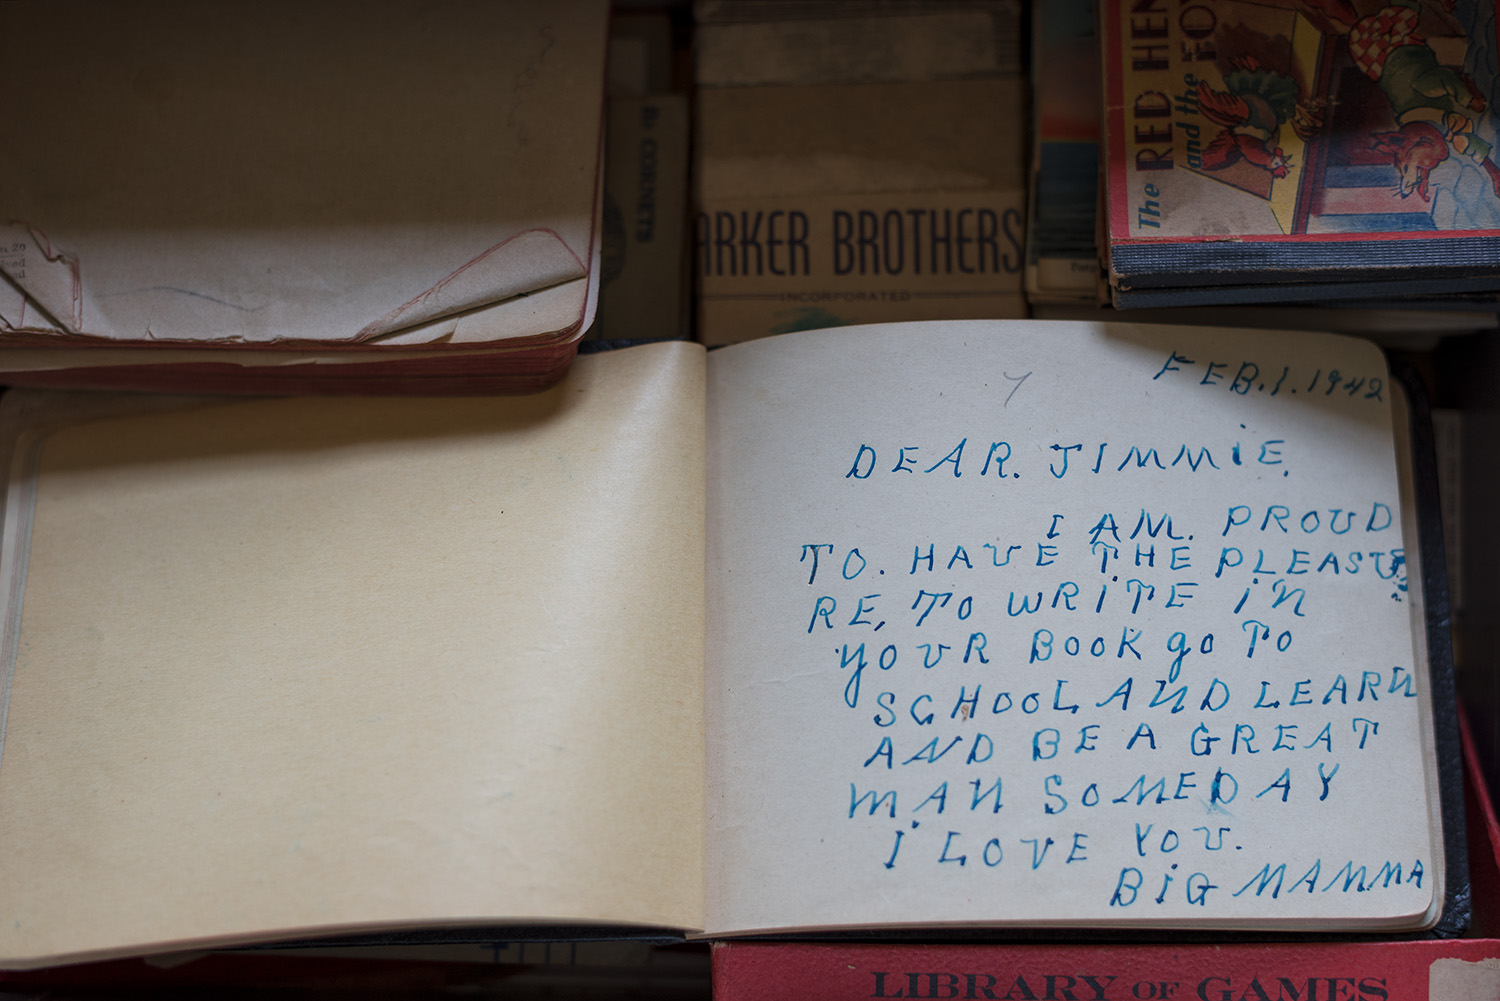 The RED HEN
and the FO
CORNETS
ARKER BROTHERS
INCORPORATED
FEB. 1. 1942
DEAR. JIMMIE,
I AM. PROUD
TO. HAVE THE PLEASU
RE, TO WRITE IN
YOUR BOOK go TO
SCHOOL AND LEARN
AND BE A GREAT
MAN SOMEDAY
I LOVE YOU.
BIG MAMMA
LIBRARY OF GAMES